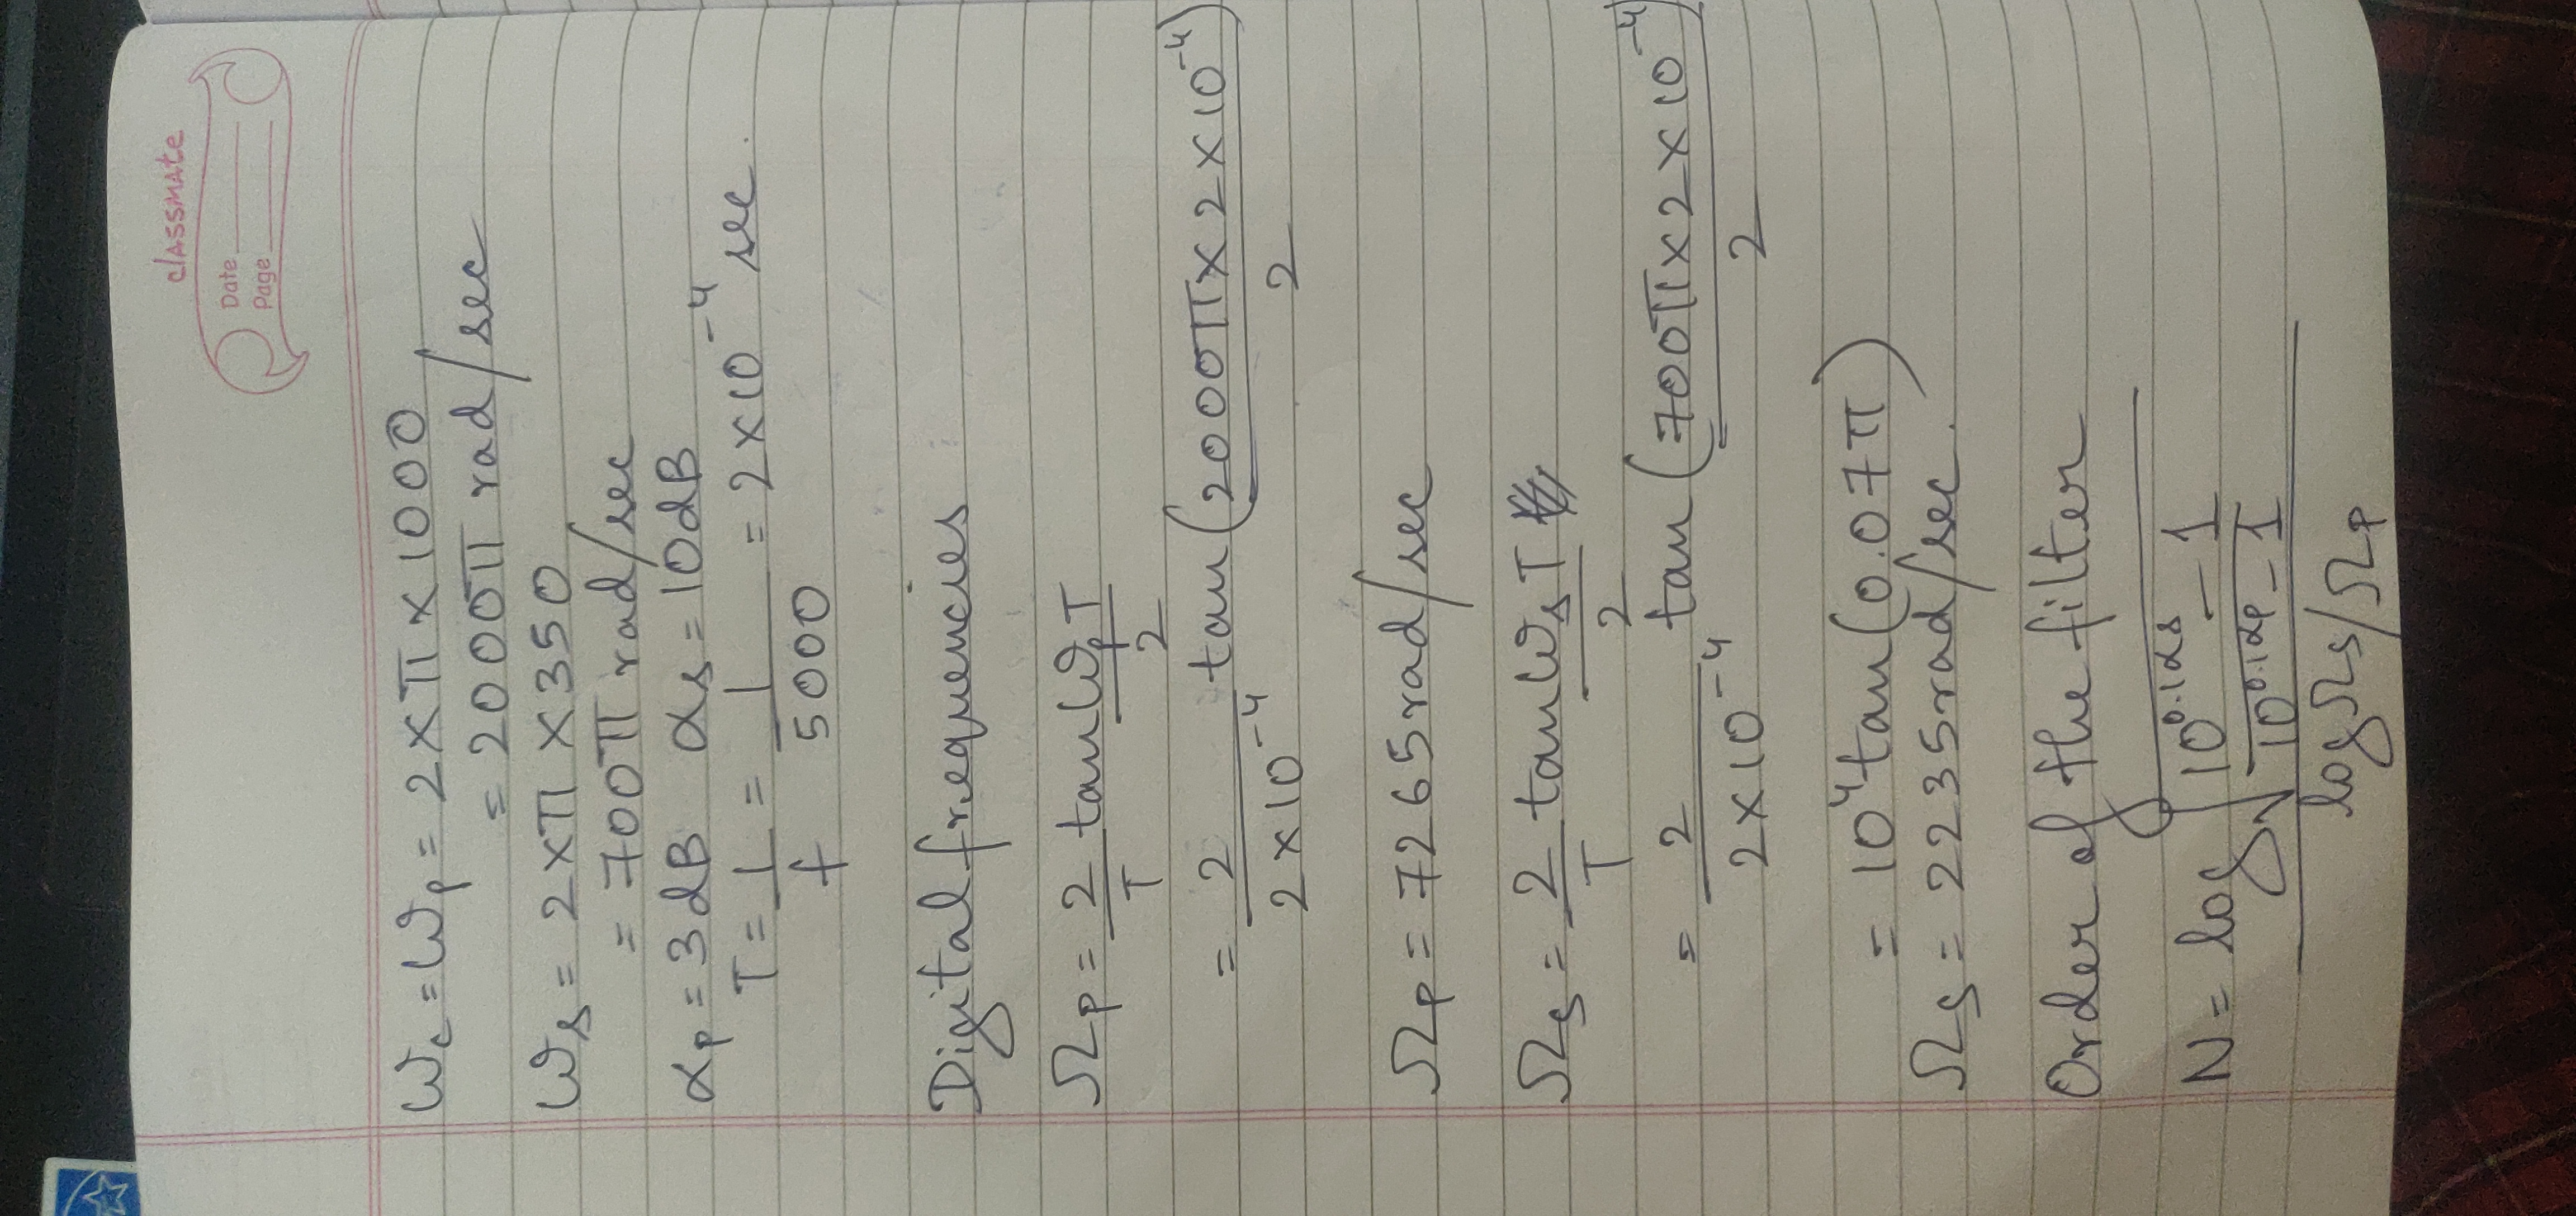 classmate
Date
Page
ωc = ωp = 2 × π × 1000
= 2000π rad/sec
ωs = 2 × π × 350
= 700π rad/sec
αp = 3dB αs = 10dB
T = 1/f = 1/5000 = 2×10^-4 sec.
Digital frequencies
Ωp = 2/T tan ωpT/2
= 2/(2×10^-4) tan (2000π × 2 × 10^-4)/2
Ωp = 7265 rad/sec
Ωs = 2/T tan ωsT/2
= 2/(2×10^-4) tan (700π × 2 × 10^-4)/2
= 10^4 tan (0.07π)
Ωs = 2235 rad/sec.
Order of the filter
N = log √((10^0.1αs - 1)/(10^0.1αp - 1))
log Ωs/Ωp